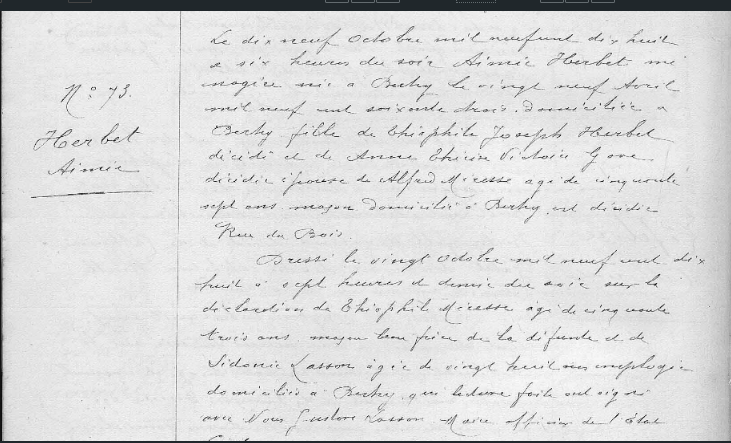 N° 73.
Herbet
Aimée
Le dix neuf Octobre mil neuf cent dix huit
à six heures du soir Aimée Herbet mé
nagère née à le vingt neuf Avril
mil neuf cent soixante trois domiciliée à
fille de Théophile Joseph Herbet
décédé et de Anne Victoire
décédée épouse de Alfred Miresse âgé de cinquante
sept ans maçon domicilié à est décédée
Rue du Bois.
Dressé le vingt Octobre mil neuf cent dix
huit à sept heures et demie du soir sur la
déclaration de Théophile Miresse âgé de cinquante
trois ans maçon beau frère de la défunte et de
Sidonie Lasson âgée de vingt huit ans employée
domiciliés à qui lecture faite ont signé
avec Nous Gustave Lasson Maire officier de l'État